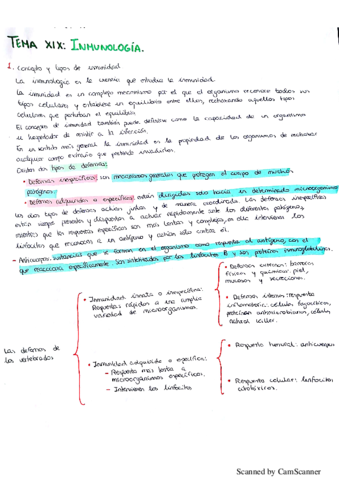 TEMA XIX: INMUNOLOGÍA.
1. Concepto y tipos de inmunidad
La inmunología es la ciencia que estudia la inmunidad.
La inmunidad es un complejo mecanismo por el que el organismo reconoce todos sus
tipos celulares y establece un equilibrio entre ellos, rechazando aquellos tipos
celulares que perturban el equilibrio.
El concepto de inmunidad también puede definirse como la capacidad de un organismo
u hospedador de resistir a la infección.
En un sentido más general la inmunidad es la propiedad de los organismos de rechazar
cualquier cuerpo extraño que pretenda invadirlos.
Existen dos tipos de defensas:
• Defensas inespecíficas: son mecanismos generales que protegen el cuerpo de muchos
patógenos.
• Defensas adquiridas o específicas: están dirigidas solo hacia un determinado microorganismo
Los dos tipos de defensas actúan juntas y de manera coordinada. Las defensas inespecíficas
están siempre presentes y dispuestas a actuar rapidamente ante los diferentes patógenos,
mientras que las respuestas específicas son más lentas y complejas, en ello intervienen los
linfocitos que reconocen a un antígeno y actúan sólo contra él.
- Anticuerpos: sustancias que se forman en el organismo como respuesta al antígeno, con el
que reacciona específicamente. Son sintetizados por los linfocitos B y son proteínas inmunoglobulinas.
Las defensas de
los vertebrados
• Inmunidad innata o inespecífica:
Respuestas rápidas a una amplia
variedad de microorganismos.
• Defensas externas: barreras
físicas y químicas: piel,
mucosas y secreciones.
• Defensas internas: respuesta
inflamatoria: células fagocíticas,
proteínas antimicrobianas, células
natural killer.
• Inmunidad adquirida o específica:
- Respuesta más lenta a
microorganismos específicos.
- Intervienen los linfocitos
• Respuesta humoral: anticuerpos
• Respuesta celular: linfocitos
citotóxicos.
Scanned by CamScanner